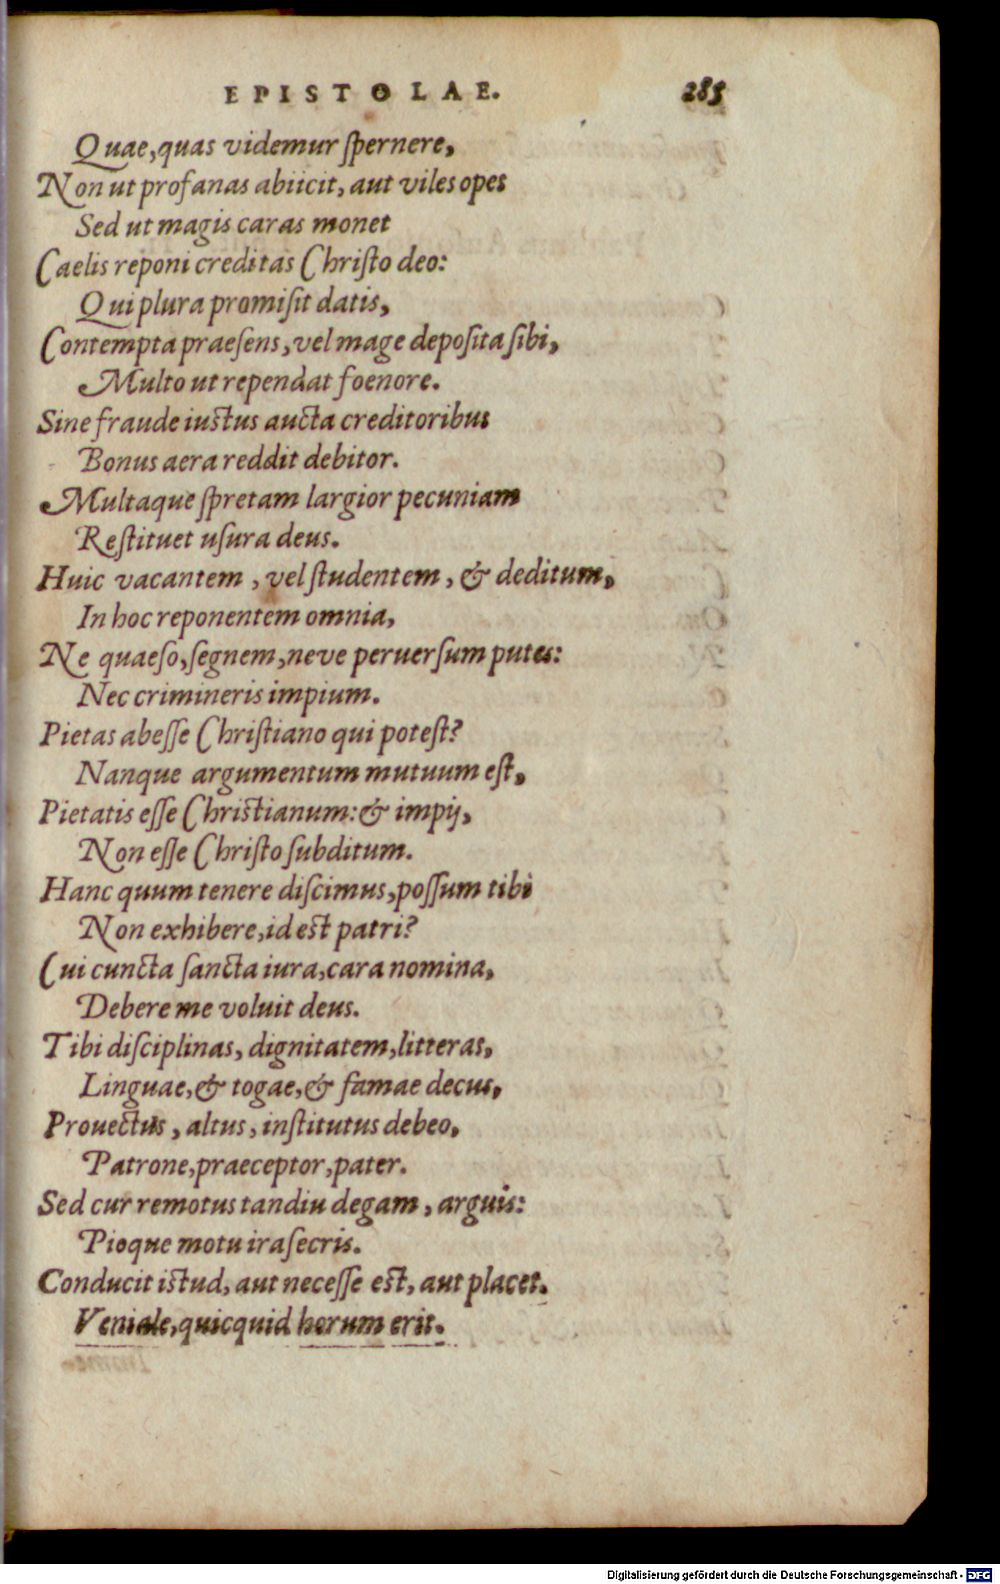 EPISTOLAE. 285
Quae, quas videmur ſpernere,
Non ut profanas abiicit, aut viles opes
Sed ut magis caras monet
Caelis reponi creditas Chriſto deo:
Qui plura promiſit datis,
Contempta praeſens, vel mage depoſita ſibi,
Multo ut rependat foenore.
Sine fraude iuſtus aucta creditoribus
Bonus aera reddit debitor.
Multaque ſpretam largior pecuniam
Reſtituet uſura deus.
Huic vacantem, vel ſtudentem, & deditum,
In hoc reponentem omnia,
Ne quaeſo, ſegnem, neve peruerſum putes:
Nec crimineris impium.
Pietas abeſſe Chriſtiano qui poteſt?
Nanque argumentum mutuum eſt,
Pietatis eſſe Chriſtianum: & impij,
Non eſſe Chriſto ſubditum.
Hanc quum tenere diſcimus, poſſum tibi
Non exhibere, id eſt patri?
Cui cuncta ſancta iura, cara nomina,
Debere me voluit deus.
Tibi diſciplinas, dignitatem, litteras,
Linguae, & togae, & famae decus,
Prouectus, altus, inſtitutus debeo,
Patrone, praeceptor, pater.
Sed cur remotus tandiu degam, arguis:
Pioque motu iraſecris.
Conducit iſtud, aut neceſſe eſt, aut placet.
Veniale, quicquid horum erit.
Digitalisierung gefördert durch die Deutsche Forschungsgemeinschaft - DFG